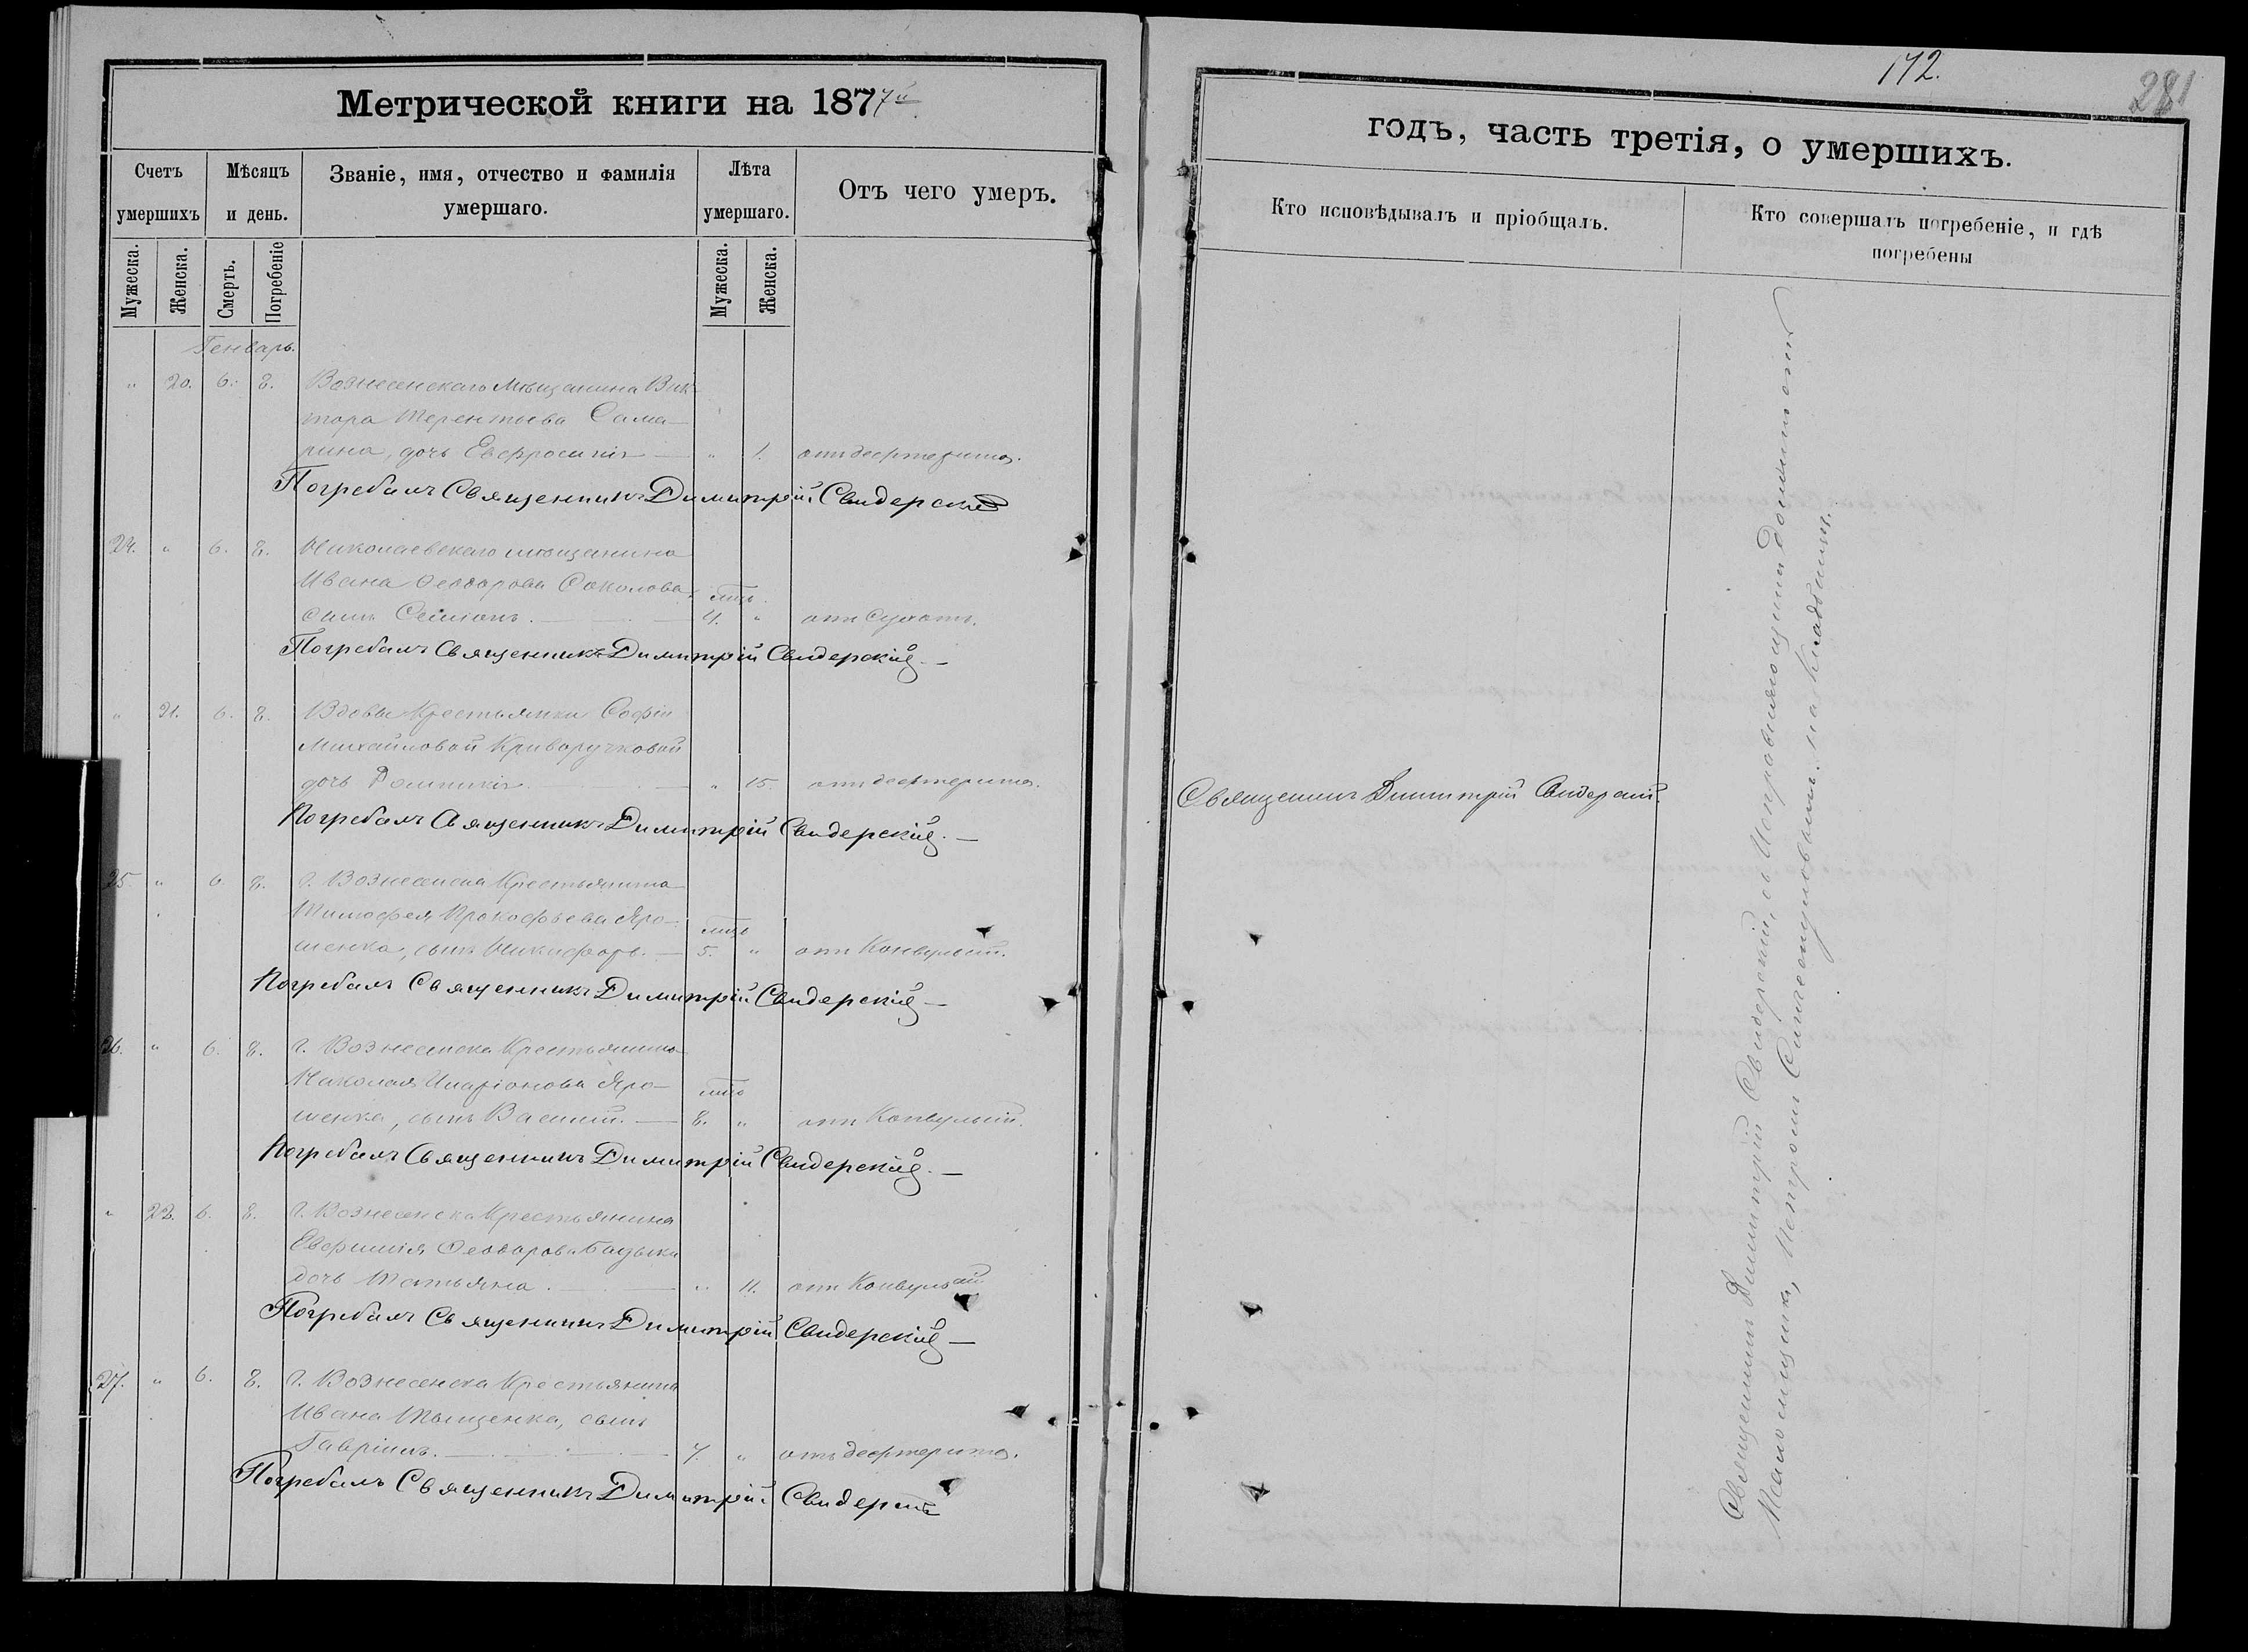 Метрической книги на 1877й
Счетъ умершихъ
Мѣсяцъ и день.
Званіе, имя, отчество и фамилія умершаго.
Лѣта умершаго.
Отъ чего умеръ.
Мужеска. Женска. Смерть. Погребеніе Мужеска. Женска.
Генварь.
" 20. 6. 8. Вознесенскаго мѣщанина Вик-
тора Терентьева Сама-
рина, дочь Евфросинія " 1. отъ дефтерита.
Погребалъ Священникъ Димитрій Свидерскій
24. " 6. 8. Николаевскаго мѣщанина
Ивана Ѳеодорова Соколова, мць.
сынъ Семіонъ. 4. " отъ сухотъ.
Погребалъ Священникъ Димитрій Свидерскій
" 21. 6. 8. Вдовы Крестьянки Софіи
Михайловой Криворучковой
дочь Домникія " 15. отъ дефтерита.
Погребалъ Священникъ Димитрій Свидерскій.
25. " 6. 8. г. Вознесенска Крестьянина
Тимофея Прокофьева Яро- мць
шенка, сынъ Никифоръ. 5. " отъ Конвульсій.
Погребалъ Священникъ Димитрій Свидерскій
26. " 6. 8. г. Вознесенска Крестьянина
Николая Иларіонова Яро-
шенка, сынъ Василій. 8. " отъ Конвульсій.
Погребалъ Священникъ Димитрій Свидерскій.
" 22. 6. 8. г. Вознесенска Крестьянина
Евфимія Ѳеодорова
дочь Татьяна. " 11. отъ Конвульсій
Погребалъ Священникъ Димитрій Свидерскій
27. " 6. 8. г. Вознесенска Крестьянина
Ивана Тыщенка, сынъ
Гавріилъ. 7. " отъ дефтерита.
Погребалъ Священникъ Димитрій Свидерскій
172.
281
годъ, часть третія, о умершихъ.
Кто исповѣдывалъ и пріобщалъ.
Кто совершалъ погребеніе, и гдѣ погребены
Священникъ Димитрій Свидерскій.
Священникъ Димитрій Свидерскій, съ Исправляющимъ должность
Псаломщика, Петромъ на Кладбищѣ.